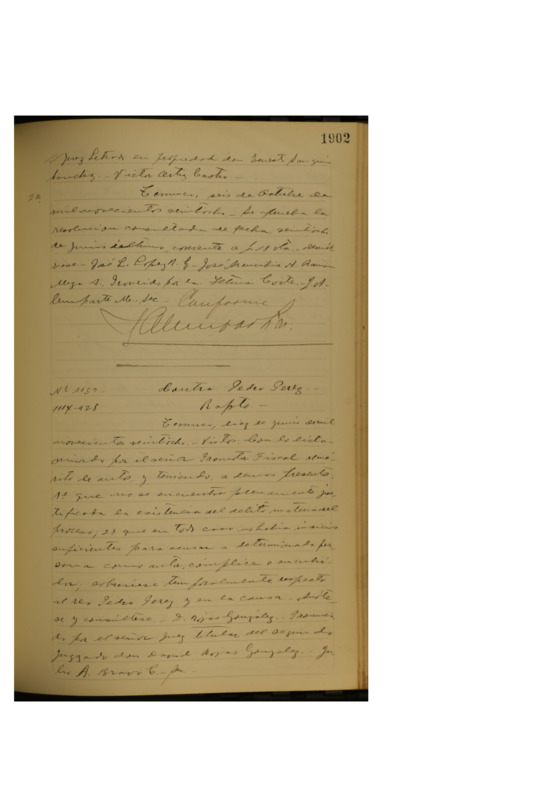 1902
Juez Letrado en propiedad don Ernesto
Sanchez.- Victor Ortiz Castro.-
Temuco, seis de Octubre de
mil novecientos veintiocho.- Se aprueba la
resolucion consultada de fecha veintiocho
de junio del corriente a f.
José L. Lopez R. G- José
Proveido por la Iltma. Corte.- J. A.
M. Sec. Conforme
Nº 1152- Contra Pedro Perez.-
1114-928 Rapto.-
Temuco, diez de junio de mil
novecientos veintiocho.- Vistos: Con lo dicta-
minado por el señor Promotor Fiscal
de autos y teniendo, a demas presente:
1º que no se encuentra plenamente jus-
tificada la existencia del delito materia del
proceso; 2º que en todo caso no habia indicios
suficientes para acusar a determinada per
sona como autor, complice o encubri-
dor, sobreseese temporalmente respecto
al reo Pedro Perez y en la causa. Anote-
se y consultese.- D. Rojas Gonzalez.- Provei-
do por el señor Juez titular del segundo
Juzgado don David Rojas Gonzalez.- Ju-
lio A. Bravo C.-